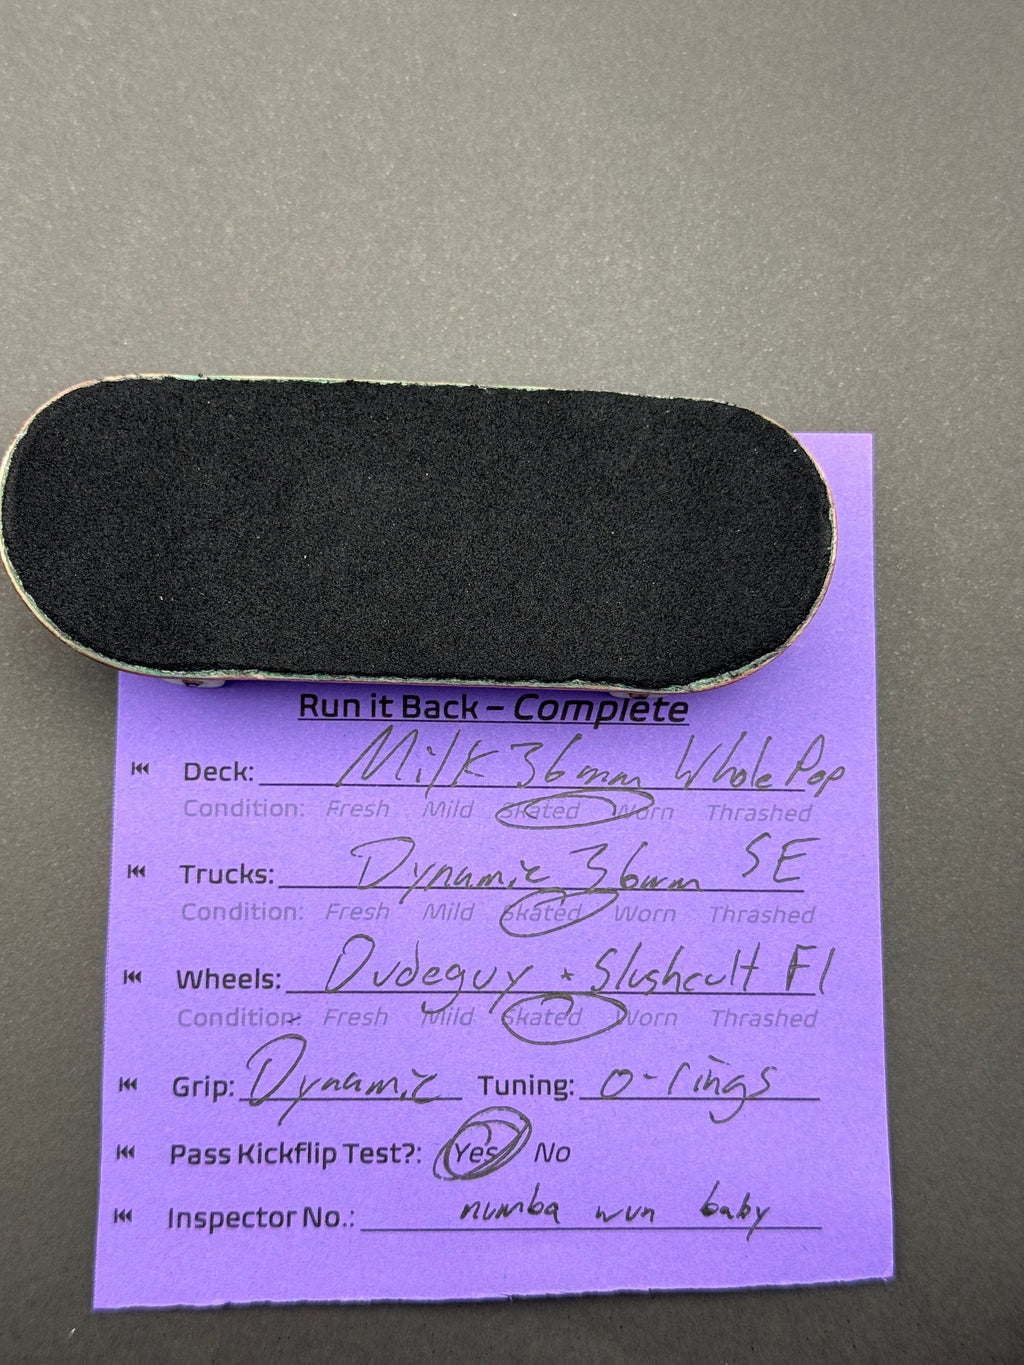 Run it Back – Complete
Deck: Milk 36mm Whole Pop
Condition: Fresh Mild Skated Worn Thrashed
Trucks: Dynamic 36mm SE
Condition: Fresh Mild Skated Worn Thrashed
Wheels: Dudeguy * Slushcult F1
Condition: Fresh Mild Skated Worn Thrashed
Grip: Dynamic Tuning: o-rings
Pass Kickflip Test?: Yes No
Inspector No.: numba wun baby